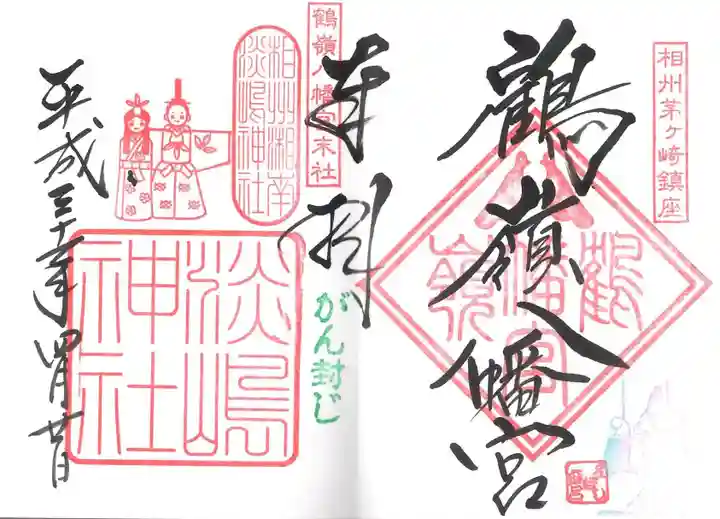 相州茅ヶ崎鎮座
鶴嶺八幡宮
鶴嶺八幡宮
奉拝
鶴嶺八幡宮末社
相州湘南
淡嶋神社
がん封じ
淡嶋
神社
平成三十一年四月廿日